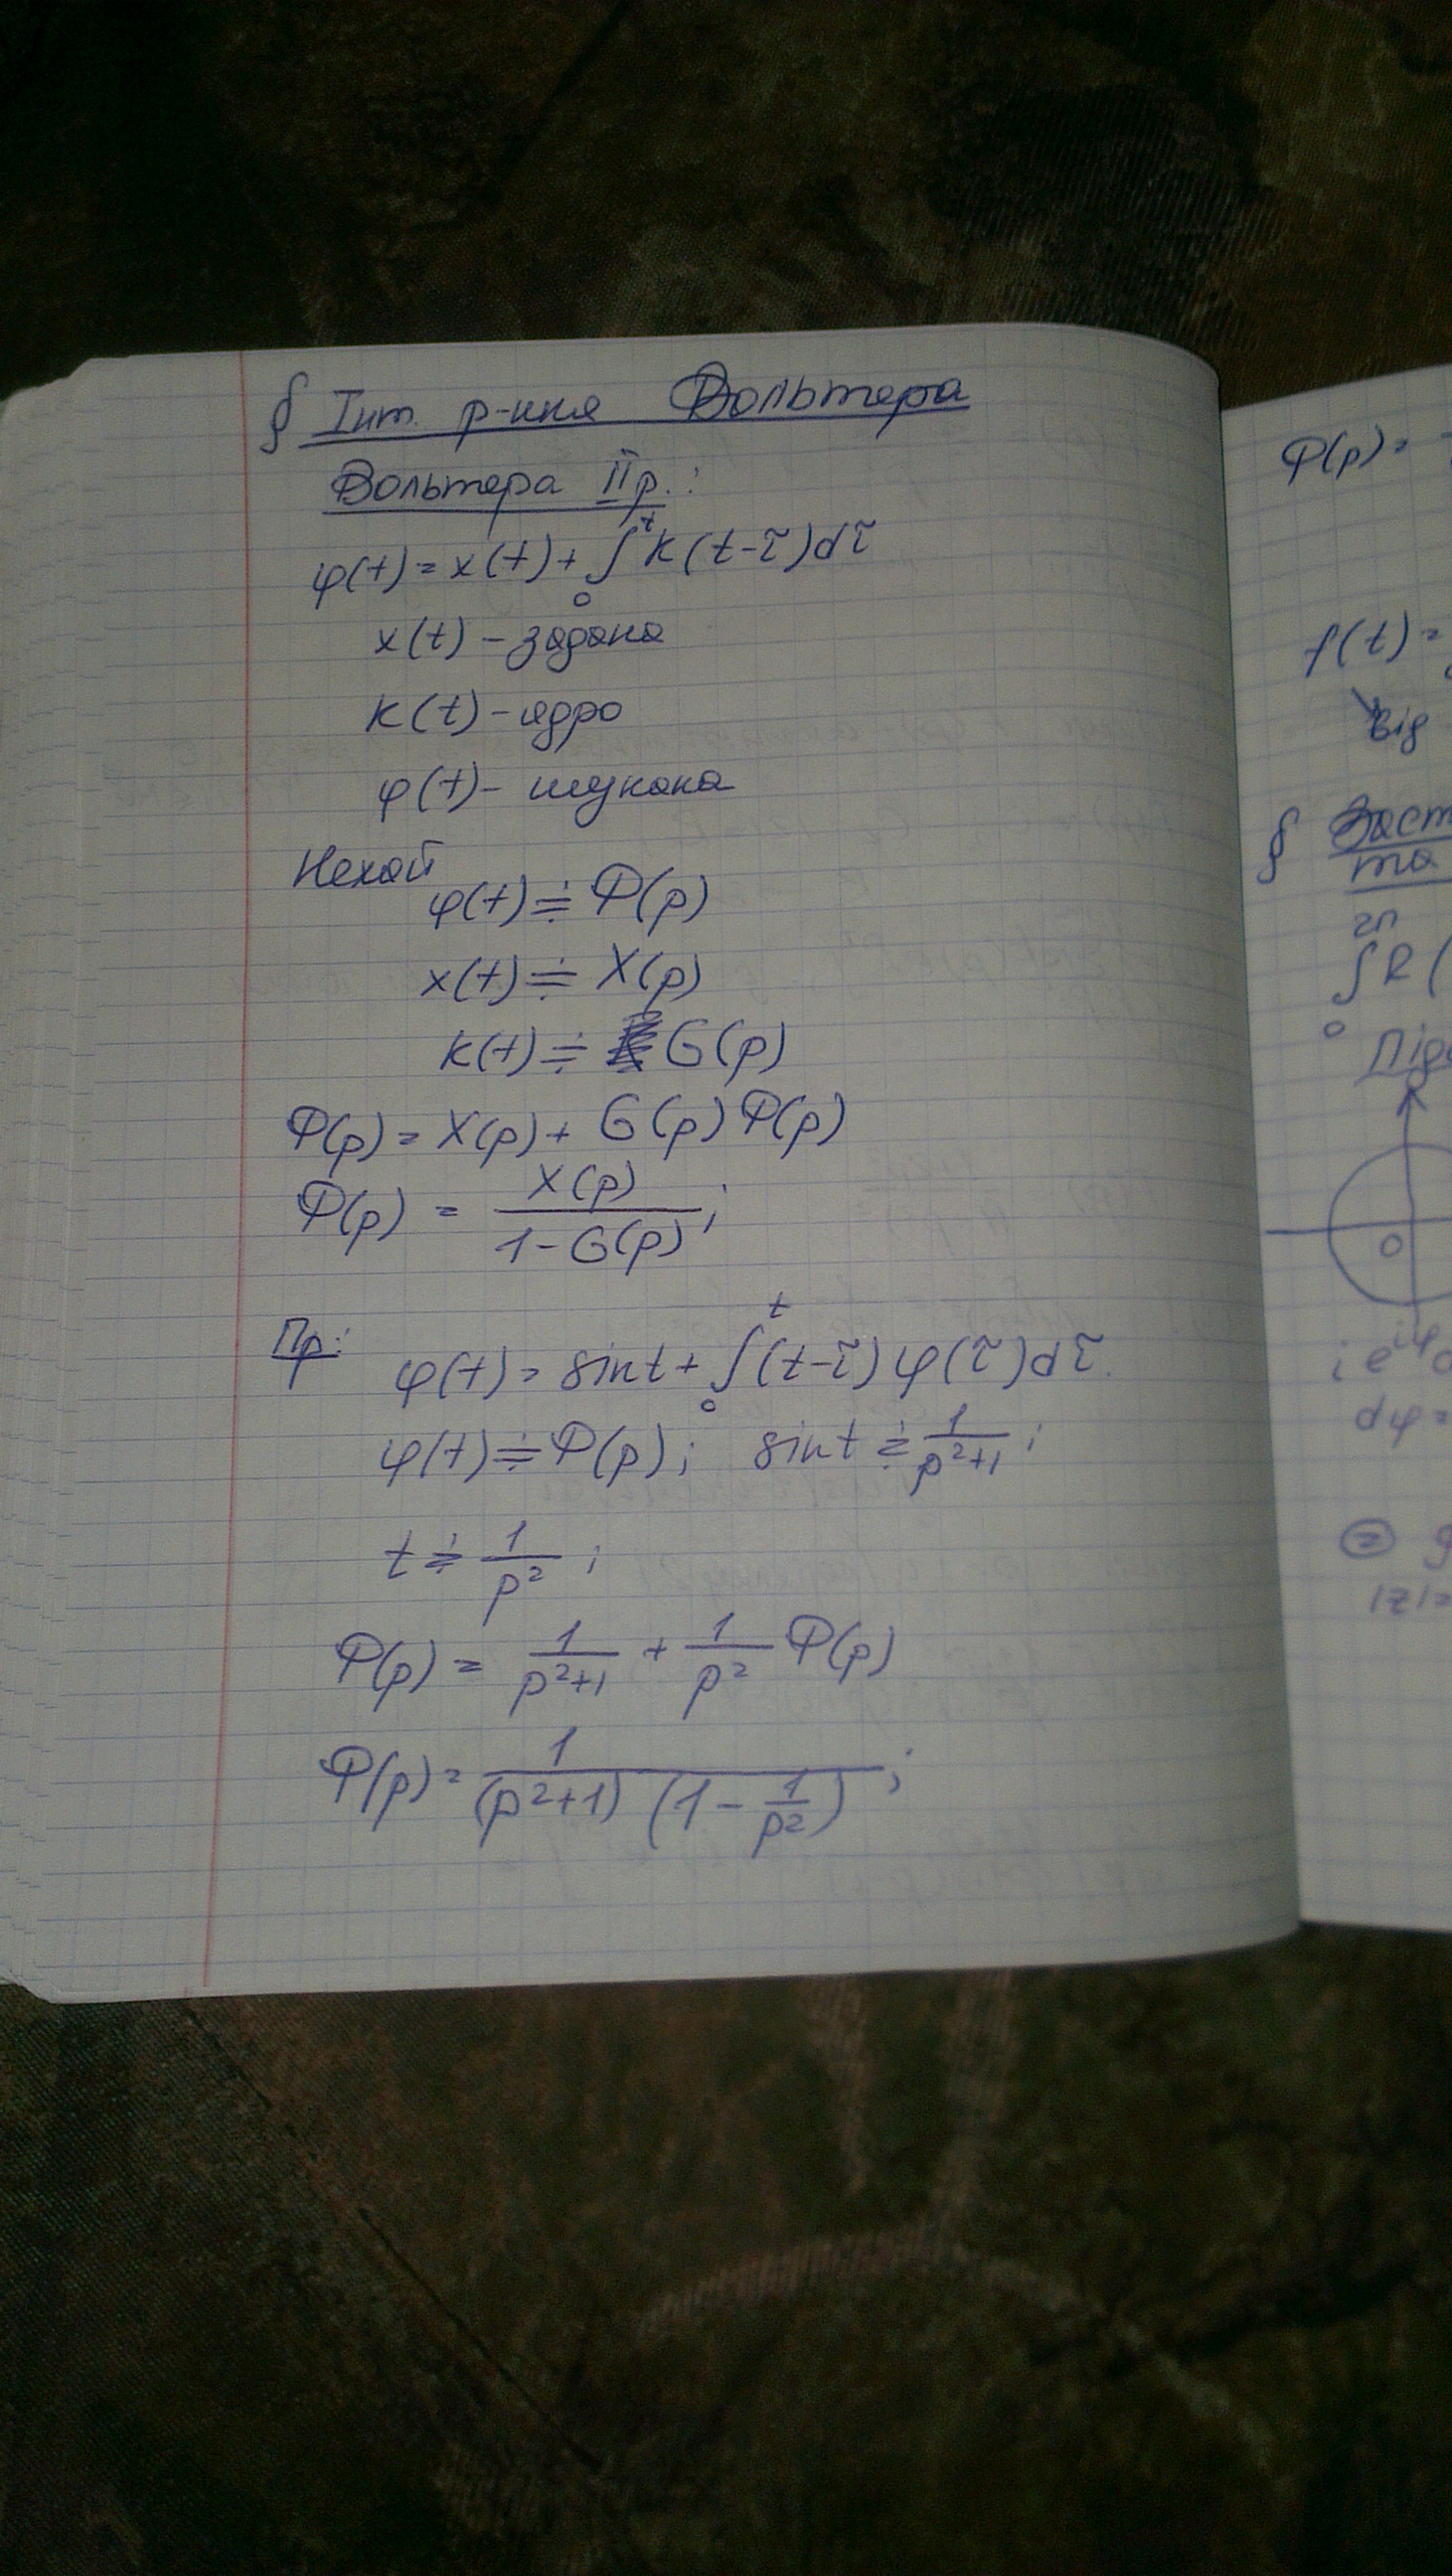 § Інт. р-ння Вольтера
Вольтера II р.:
φ(t) = x(t) + ∫₀ᵗ k(t-τ)dτ
x(t) – задана
k(t) – ядро
φ(t) – шукана
Нехай
φ(t) ≑ Φ(p)
x(t) ≑ X(p)
k(t) ≑ G(p)
Φ(p) = X(p) + G(p) Φ(p)
Φ(p) = X(p) / (1 - G(p)) ;
Пр:
φ(t) = sin t + ∫₀ᵗ (t-τ) φ(τ)dτ.
φ(t) ≑ Φ(p) ; sin t ≑ 1/(p²+1) ;
t ≑ 1/p² ;
Φ(p) = 1/(p²+1) + 1/p² Φ(p)
Φ(p) = 1 / ((p²+1) (1 - 1/p²)) ;
Φ(p) =
f(t) =
від
§ Заст
та
2π
∫ R (
0
Під
0
i e^{iφ}
dφ =
|z|=